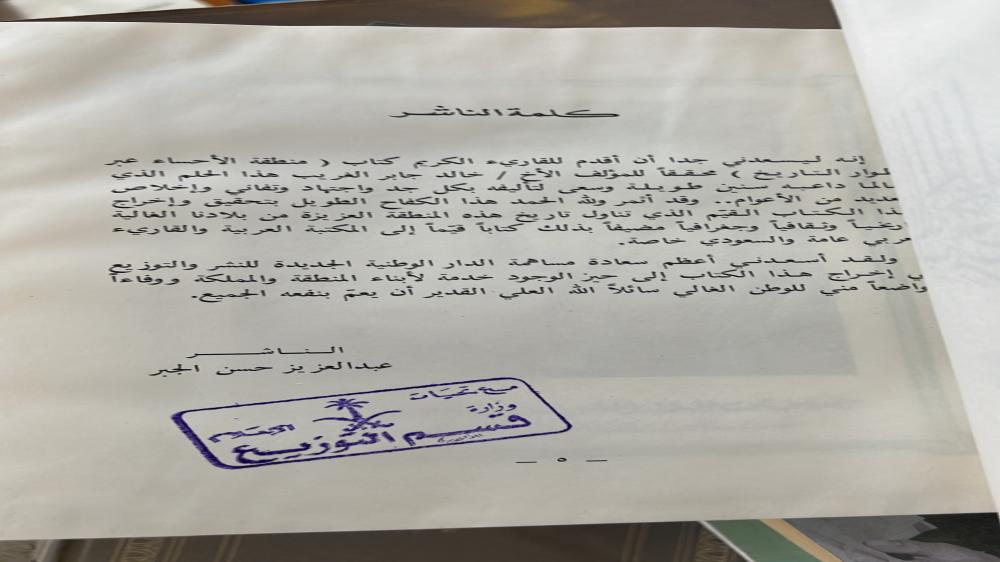 كلمة الناشر
إنه ليسعدني جدا أن أقدم للقاريء الكريم كتاب ( منطقة الأحساء عبر
طوار التاريخ ) محققاً للمؤلف الأخ / خالد جابر الغريب هذا الحلم الذي
داعبه سنين طويلة وسعى لتأليفه بكل جد واجتهاد وتفاني وإخلاص
من الأعوام.. وقد أثمر ولله الحمد هذا الكفاح الطويل بتحقيق وإخراج
الكتاب القيّم الذي تناول تاريخ هذه المنطقة العزيزة من بلادنا الغالية
وثقافياً وجغرافياً مضيفاً بذلك كتاباً قيّماً إلى المكتبة العربية والقاريء
عربي عامة والسعودي خاصة.
ولقد أسعدني أعظم سعادة مساهمة الدار الوطنية الجديدة للنشر والتوزيع
إخراج هذا الكتاب إلى حيز الوجود خدمة لأبناء المنطقة والمملكة ووفاءاً
واضعاً مني للوطن الغالي سائلاً الله العلي القدير أن يعمّ بنفعه الجميع.
الناشر
عبدالعزيز حسن الجبر
مع تحيات
وزارة الإعلام
قسم التوزيع
— ٥ —